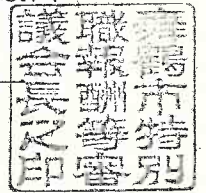 舞鶴市特別
職報酬等審
議会長之印